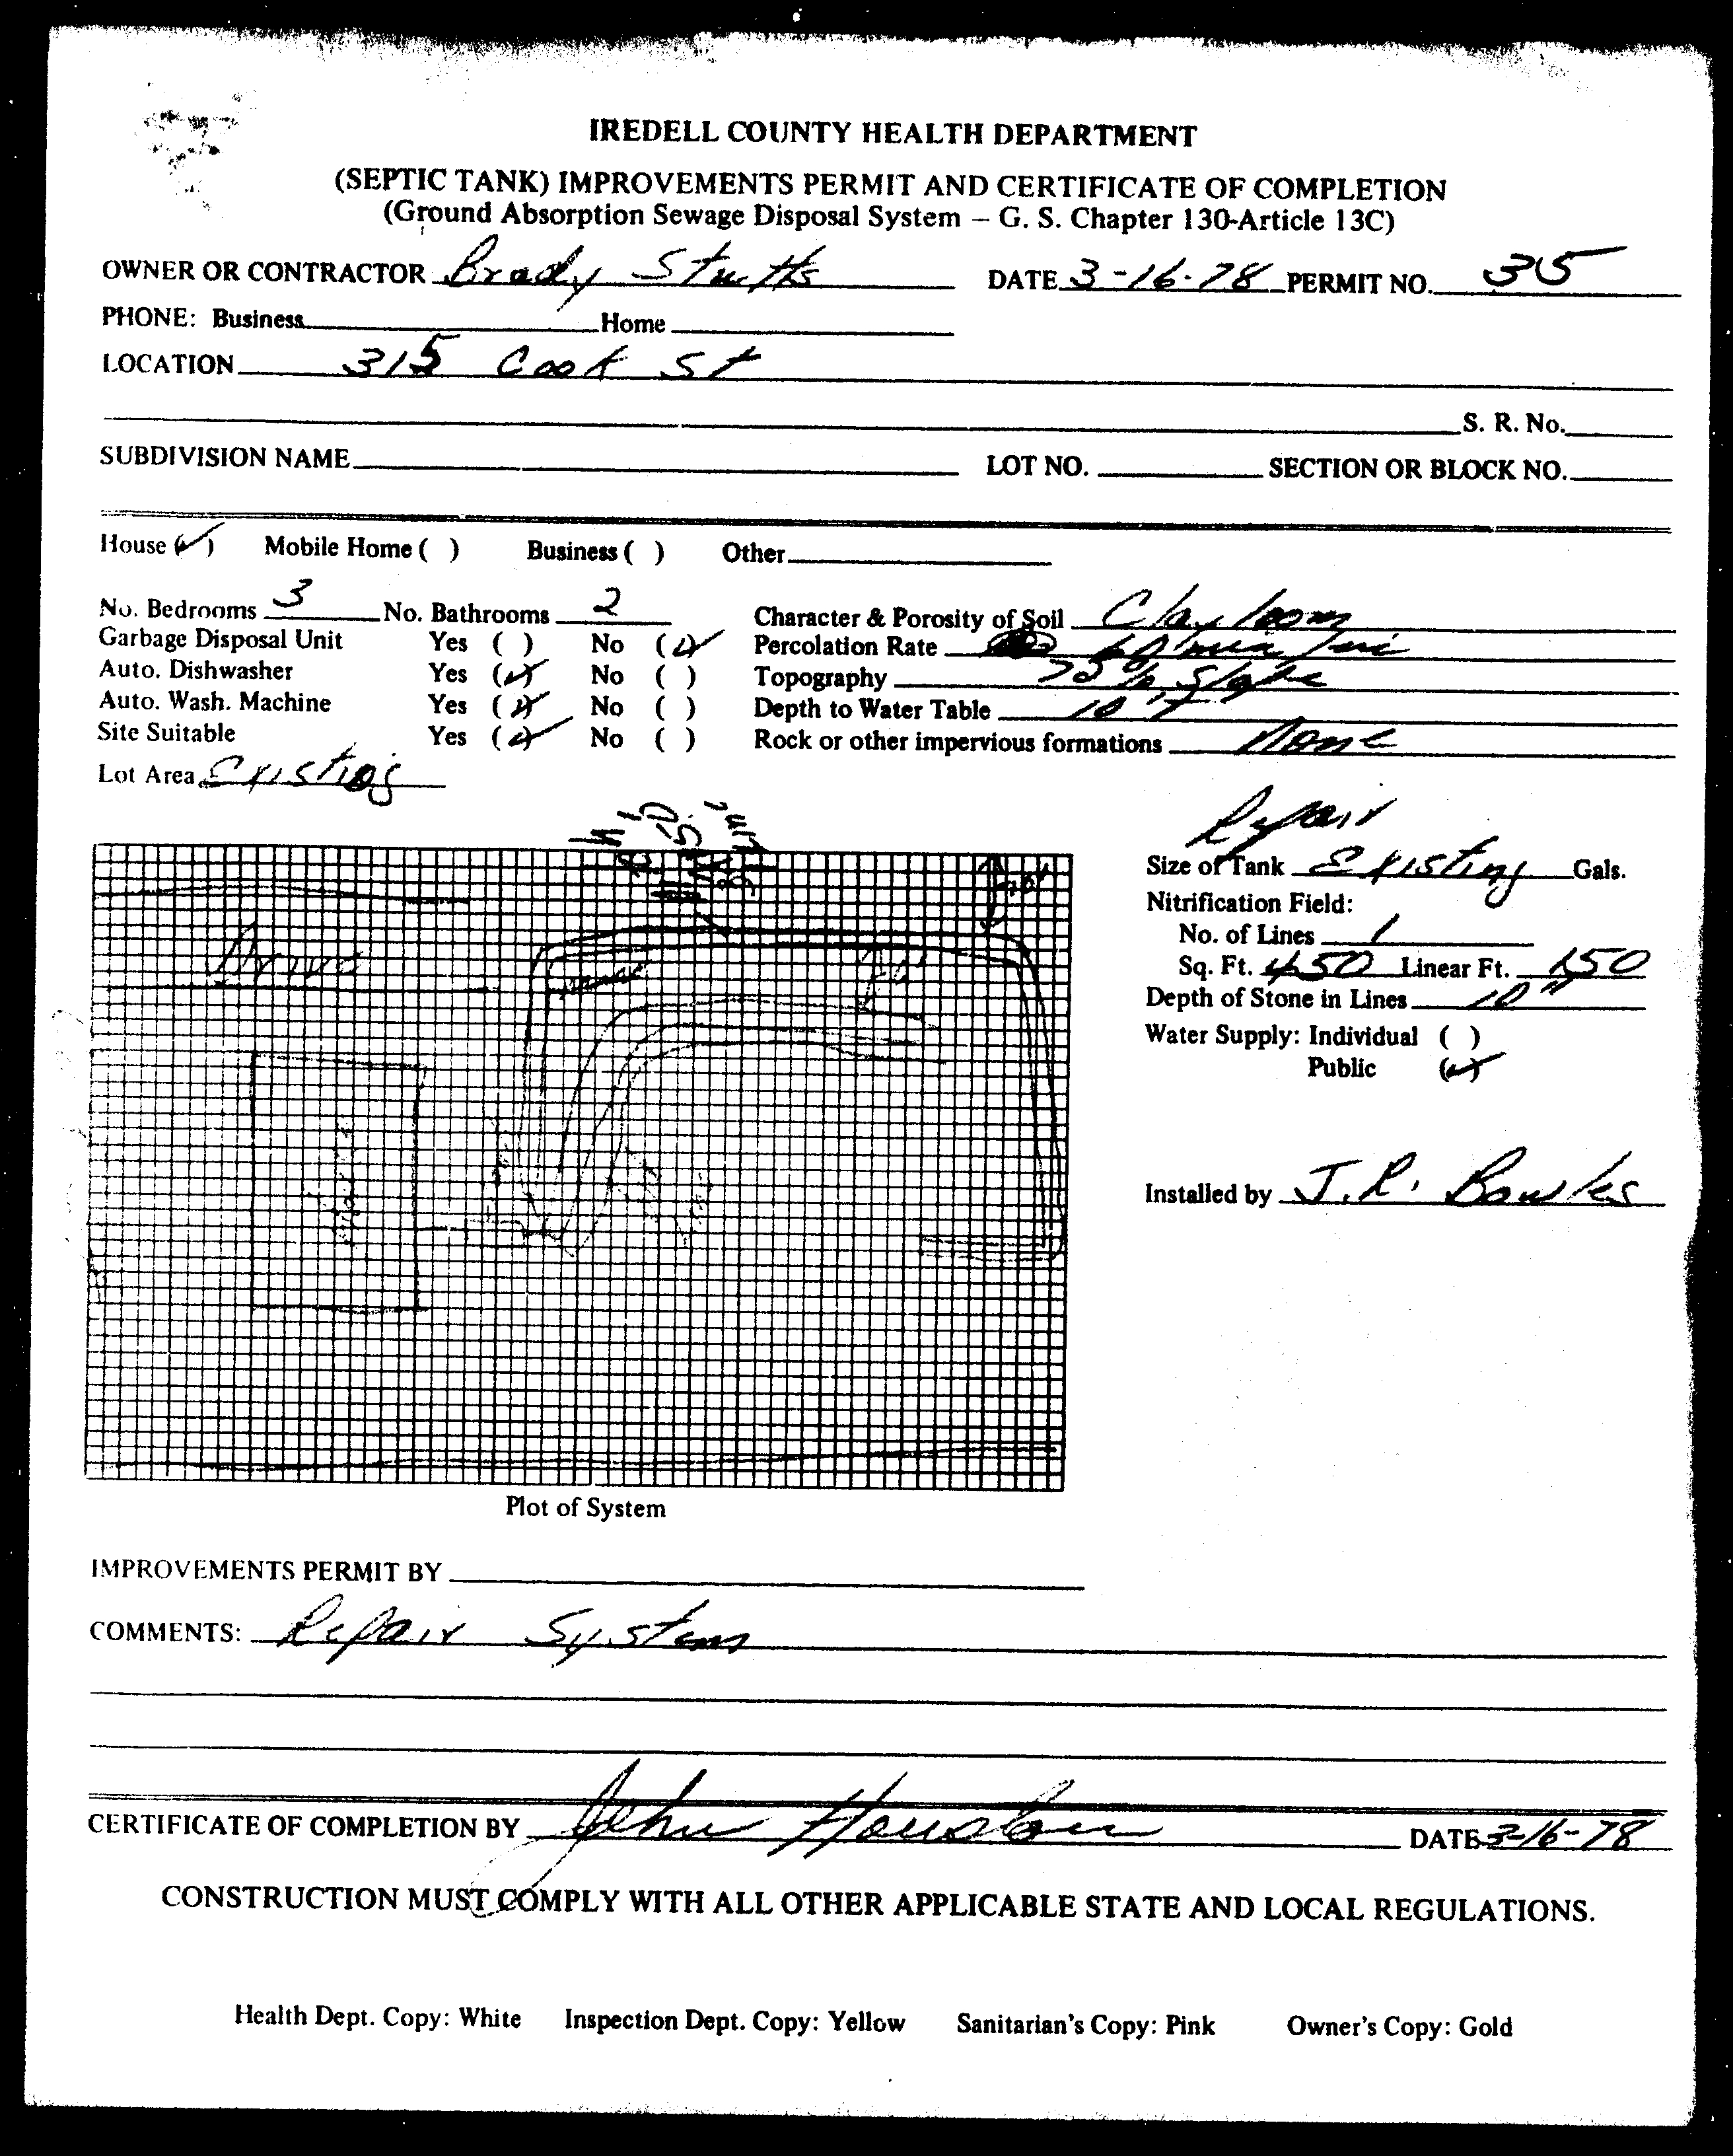 IREDELL COUNTY HEALTH DEPARTMENT
(SEPTIC TANK) IMPROVEMENTS PERMIT AND CERTIFICATE OF COMPLETION
(Ground Absorption Sewage Disposal System – G. S. Chapter 130-Article 13C)
OWNER OR CONTRACTOR Brady DATE 3-16-78 PERMIT NO. 35
PHONE: Business Home
LOCATION 315 Cook St
S. R. No.
SUBDIVISION NAME LOT NO. SECTION OR BLOCK NO.
House (✓) Mobile Home ( ) Business ( ) Other
No. Bedrooms 3 No. Bathrooms 2 Character & Porosity of Soil Clay loom
Garbage Disposal Unit Yes ( ) No (✓) Percolation Rate 60 min/in
Auto. Dishwasher Yes (✓) No ( ) Topography % Slope
Auto. Wash. Machine Yes (✓) No ( ) Depth to Water Table 10'+
Site Suitable Yes (✓) No ( ) Rock or other impervious formations None
Lot Area Existing
Repair
Size of Tank Existing Gals.
Nitrification Field:
No. of Lines 1
Sq. Ft. 450 Linear Ft. 150
Depth of Stone in Lines 10"
Water Supply: Individual ( )
Public (✓)
Installed by J.R. Bowles
Drive
Plot of System
IMPROVEMENTS PERMIT BY
COMMENTS: Repair System
CERTIFICATE OF COMPLETION BY John Houston DATE 3-16-78
CONSTRUCTION MUST COMPLY WITH ALL OTHER APPLICABLE STATE AND LOCAL REGULATIONS.
Health Dept. Copy: White Inspection Dept. Copy: Yellow Sanitarian's Copy: Pink Owner's Copy: Gold